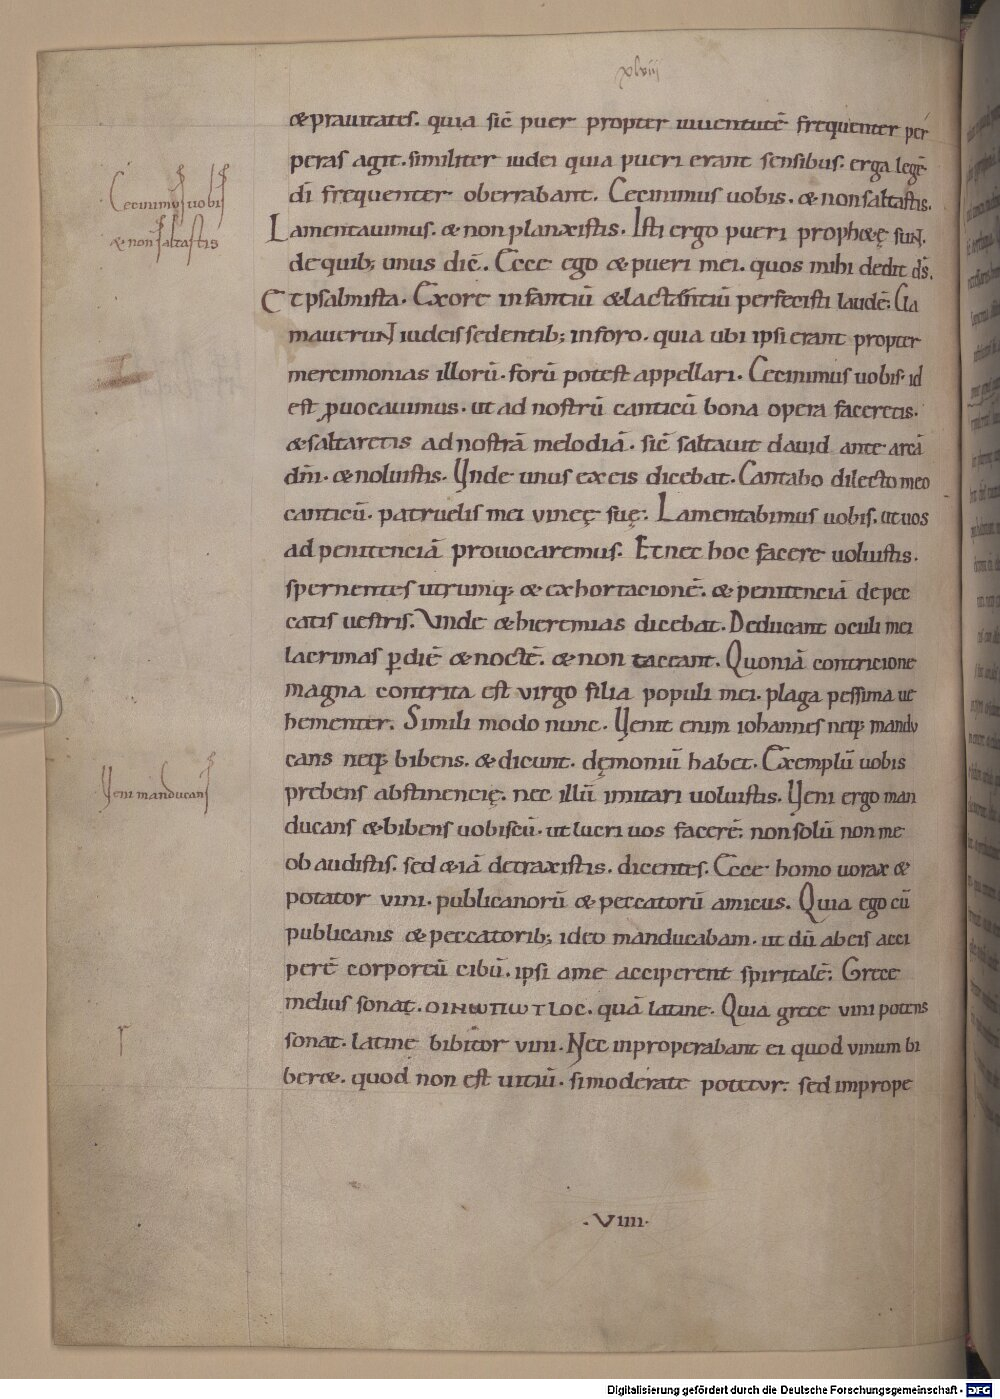 xlviij
&prauitates. quia sic̄ puer propter iuuentutē frequenter per
peras agit. similiter iudei quia pueri erant sensibus. erga legē
dī frequenter oberrabant. Cecinimus uobis. & non saltastis.
Lamentauimus. & non planxistis. Isti ergo pueri proph&ę suN̄.
de quib; unus dic̄. Ecce ego & pueri mei. quos mihi dedit ds̄.
Et psalmista. Ex ore infantiū & lactentiū perfecisti laudē: Cla
maueruNt iudeis sedentib; in foro. quia ubi ipsi erant propter
mercimonias illorū. forū potest appellari. Cecinimus uobis. id
est ꝓuocauimus. ut ad nostrū canticū bona opera faceretis.
& saltaretis ad nostrā melodiā. sic̄ saltauit dauid ante arcā
dn̄i. & noluistis. Unde unus ex eis dicebat. Cantabo dilecto meo
canticū. patruelis mei vineę suę: Lamentabimus uobis. ut uos
ad penitenciā prouocaremus. Et nec hoc facere uoluistis.
spernentes utrumq; & exhortacionē. & penitenciā de pec
catis uestris. Vnde & hieremias dicebat. Deducant oculi mei
lacrimas ꝑ diē & noctē. & non taceant. Quoniā contricione
magna contrita est virgo filia populi mei. plaga pessima ue
hementer. Simili modo nunc. Uenit enim iohannes neq; mandu
cans neq; bibens. & dicunt. dęmoniū habet. Exemplū uobis
prebens abstinencię. nec illū imitari uoluistis. Ueni ergo man
ducans & bibens uobiscū. ut lucri uos facerē: non solū non me
ob audistis. sed & iā detraxistis. dicentes. Ecce homo uorax &
potator vini. publicanorū & peccatorū amicus. Quia ego cū
publicanis & peccatorib; ideo manducabam. ut dū ab eis acci
perē corporeū cibū. ipsi a me acciperent spiritalē: Grece
melius sonat. ΟΙΝωΠωΤΙΟϹ. quā latine. Quia grece vini potens
sonat. latine bibitor vini. Nec inproperabant ei quod vinum bi
ber&. quod non est uitiū. si moderate potetur: sed imprope
Cecinimus uobis
& non saltastis
Ueni manducans
r
.VIIII.
Digitalisierung gefördert durch die Deutsche Forschungsgemeinschaft - DFG